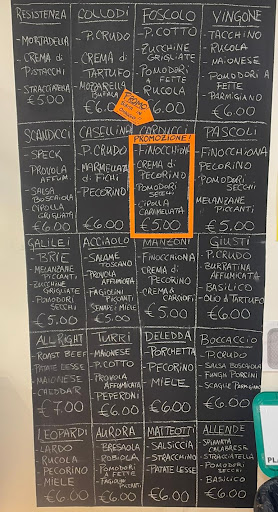 RESISTENZA
- MORTADELLA
- CREMA di PISTACCHI
- STRACCIATELLA
€5.00
COLLODI
- P.CRUDO
- CREMA di TARTUFO
- MOZZARELLA BUFALA
€6.0
FOSCOLO
- P.COTTO
- ZUCCHINE GRIGLIATE
- POMODORI A FETTE
- RUCOLA
€6.00
VINGONE
- TACCHINO
- RUCOLA
- MAIONESE
- POMODORI A FETTE
- PARMIGIANO
€6.00
PROMO
SCANDICCI
- SPECK
- PROVOLA AFFUM.
- SALSA BOSCAIOLA
- CIPOLLA GRIGLIATA
€6.00
CASELLINA
- P.CRUDO
- MARMELLATA di FICHI
- PECORINO
€6.00
CARDUCCI
PROMOZIONE!
- FINOCCHIONA
- CREMA di PECORINO
- POMODORI SECCHI
- CIPOLLA CARAMELLATA
€5.00
PASCOLI
- FINOCCHIONA
- PECORINO
- POMODORI SECCHI
- MELANZANE PICCANTI
€5.00
GALILEI
- BRIE
- MELANZANE PICCANTI
- ZUCCHINE GRIGLIATE
- POMODORI SECCHI
€5.00
ACCIAOLO
- SALAME TOSCANO
- PROVOLA AFFUMICATA
- FAGIOLINI PICCANTI
- SENAPE e MIELE
€5.00
MANZONI
- FINOCCHIONA
- CREMA di PECORINO
- CREMA CARCIOFI
€5.00
GIUSTI
- P.CRUDO
- BURRATINA AFFUMICATA
- BASILICO
- OLIO di TARTUFO
€6.00
ALL RIGHT
- ROAST BEEF
- PATATE LESSE
- MAIONESE
- CHEDDAR
€7.00
TURRI
- MAIONESE
- P.COTTO
- PROVOLA AFFUMICATA
- PEPERONI
€6.00
DELEDDA
- PORCHETTA
- PECORINO
- MIELE
€6.00
BOCCACCIO
- P.CRUDO
- SALSA BOSCAIOLA
- FUNGHI PORCINI
- SCAGLIE PARMIGIANO
€6.00
LEOPARDI
- LARDO
- RUCOLA
- PECORINO
- MIELE
€6.00
AURORA
- BRESAOLA
- ROBIOLA
- POMODORI A FETTE
€6.00
MATTEOTTI
- SALSICCIA
- STRACCHINO
- PATATE LESSE
€6.00
ALLENDE
- SPIANATA CALABRESE
- STRACCIATELLA
- POMODORI SECCHI
- BASILICO
€6.00